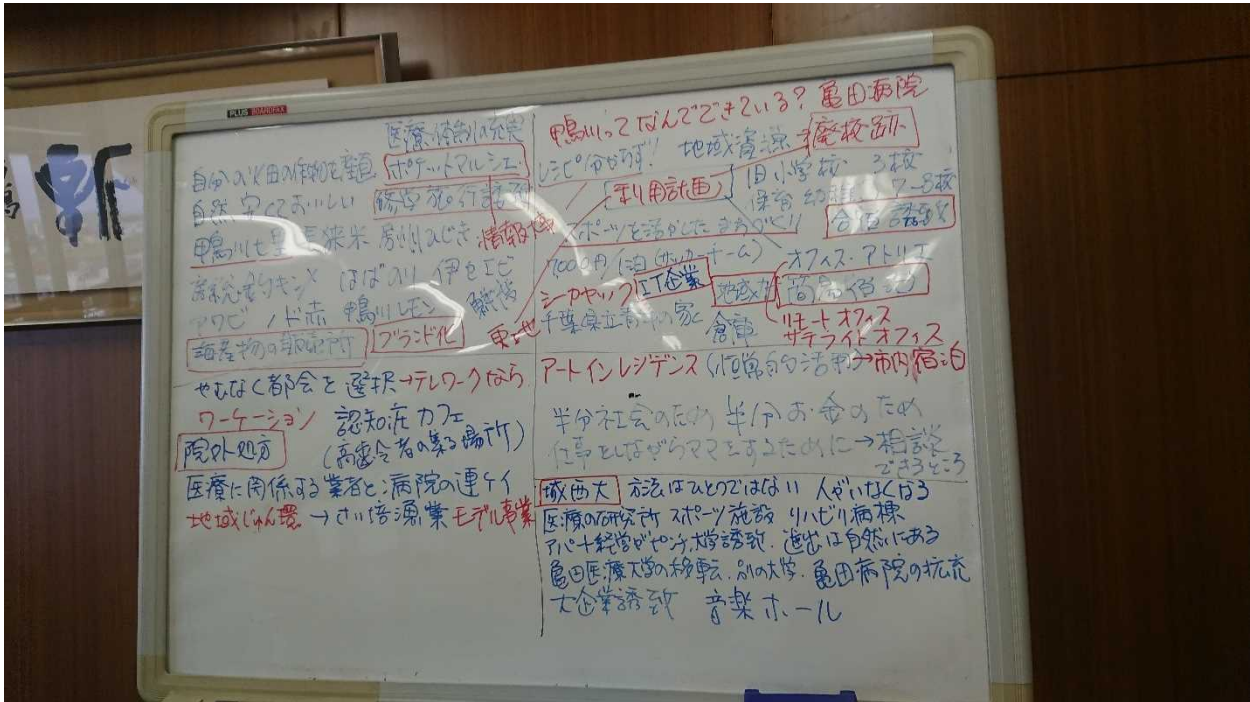 PLUS BOARDFAX
医療体制の充実
自分の畑の作物を産直 ポケットマルシェ
自然 安くておいしい 修学旅行誘致
鴨川七里 長狭米 房州ひじき 情報
キンメ はばのり 伊セエビ
アワビ ノド赤 鴨川レモン
海産物の研究所 ブランド化
やむなく都会を選択→テレワークなら
ワーケーション 認知症カフェ
(高齢者の集る場所)
院外処方
医療に関係する業者と病院の連ケイ
地域じゅん環→さい培漁業 モデル事業
鴨川ってなんでできている? 亀田病院
レシピ分からず! 地域資源 廃校跡
利用計画 旧小学校 3校
保育 幼稚 7-8校
スポーツを活かしたまちづくり 合宿誘致
7000円/泊(サッカーチーム) オフィス・アトリエ
シーカヤック IT企業 簡易宿泊
千葉県立青少年の家 倉庫 リモートオフィス
サテライトオフィス
アートインレジデンス(恒常的活用→市内宿泊
半分社会のため 半分お金のため
仕事をしながらママをするために→相談
できるところ
城西大 方法はひとつではない 人がいなくなる
医療の研究所 スポーツ施設 リハビリ病棟
アパート経営がピンチ.大学誘致.進出は自然にある
亀田医療大学の移転.別の大学.亀田病院の拡充
大企業誘致 音楽ホール